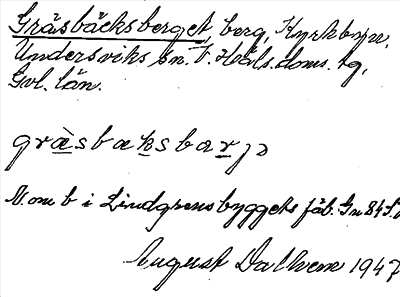 Gräsbäcksberget, berg, Kyrkbyn,
Undersviks sn. V. Häls. doms. tg,
Gvl. län.
gràsbæksbarjə
N. om b i Lindgrensbyggets fäb. Gn 84
August Dalhem 1947